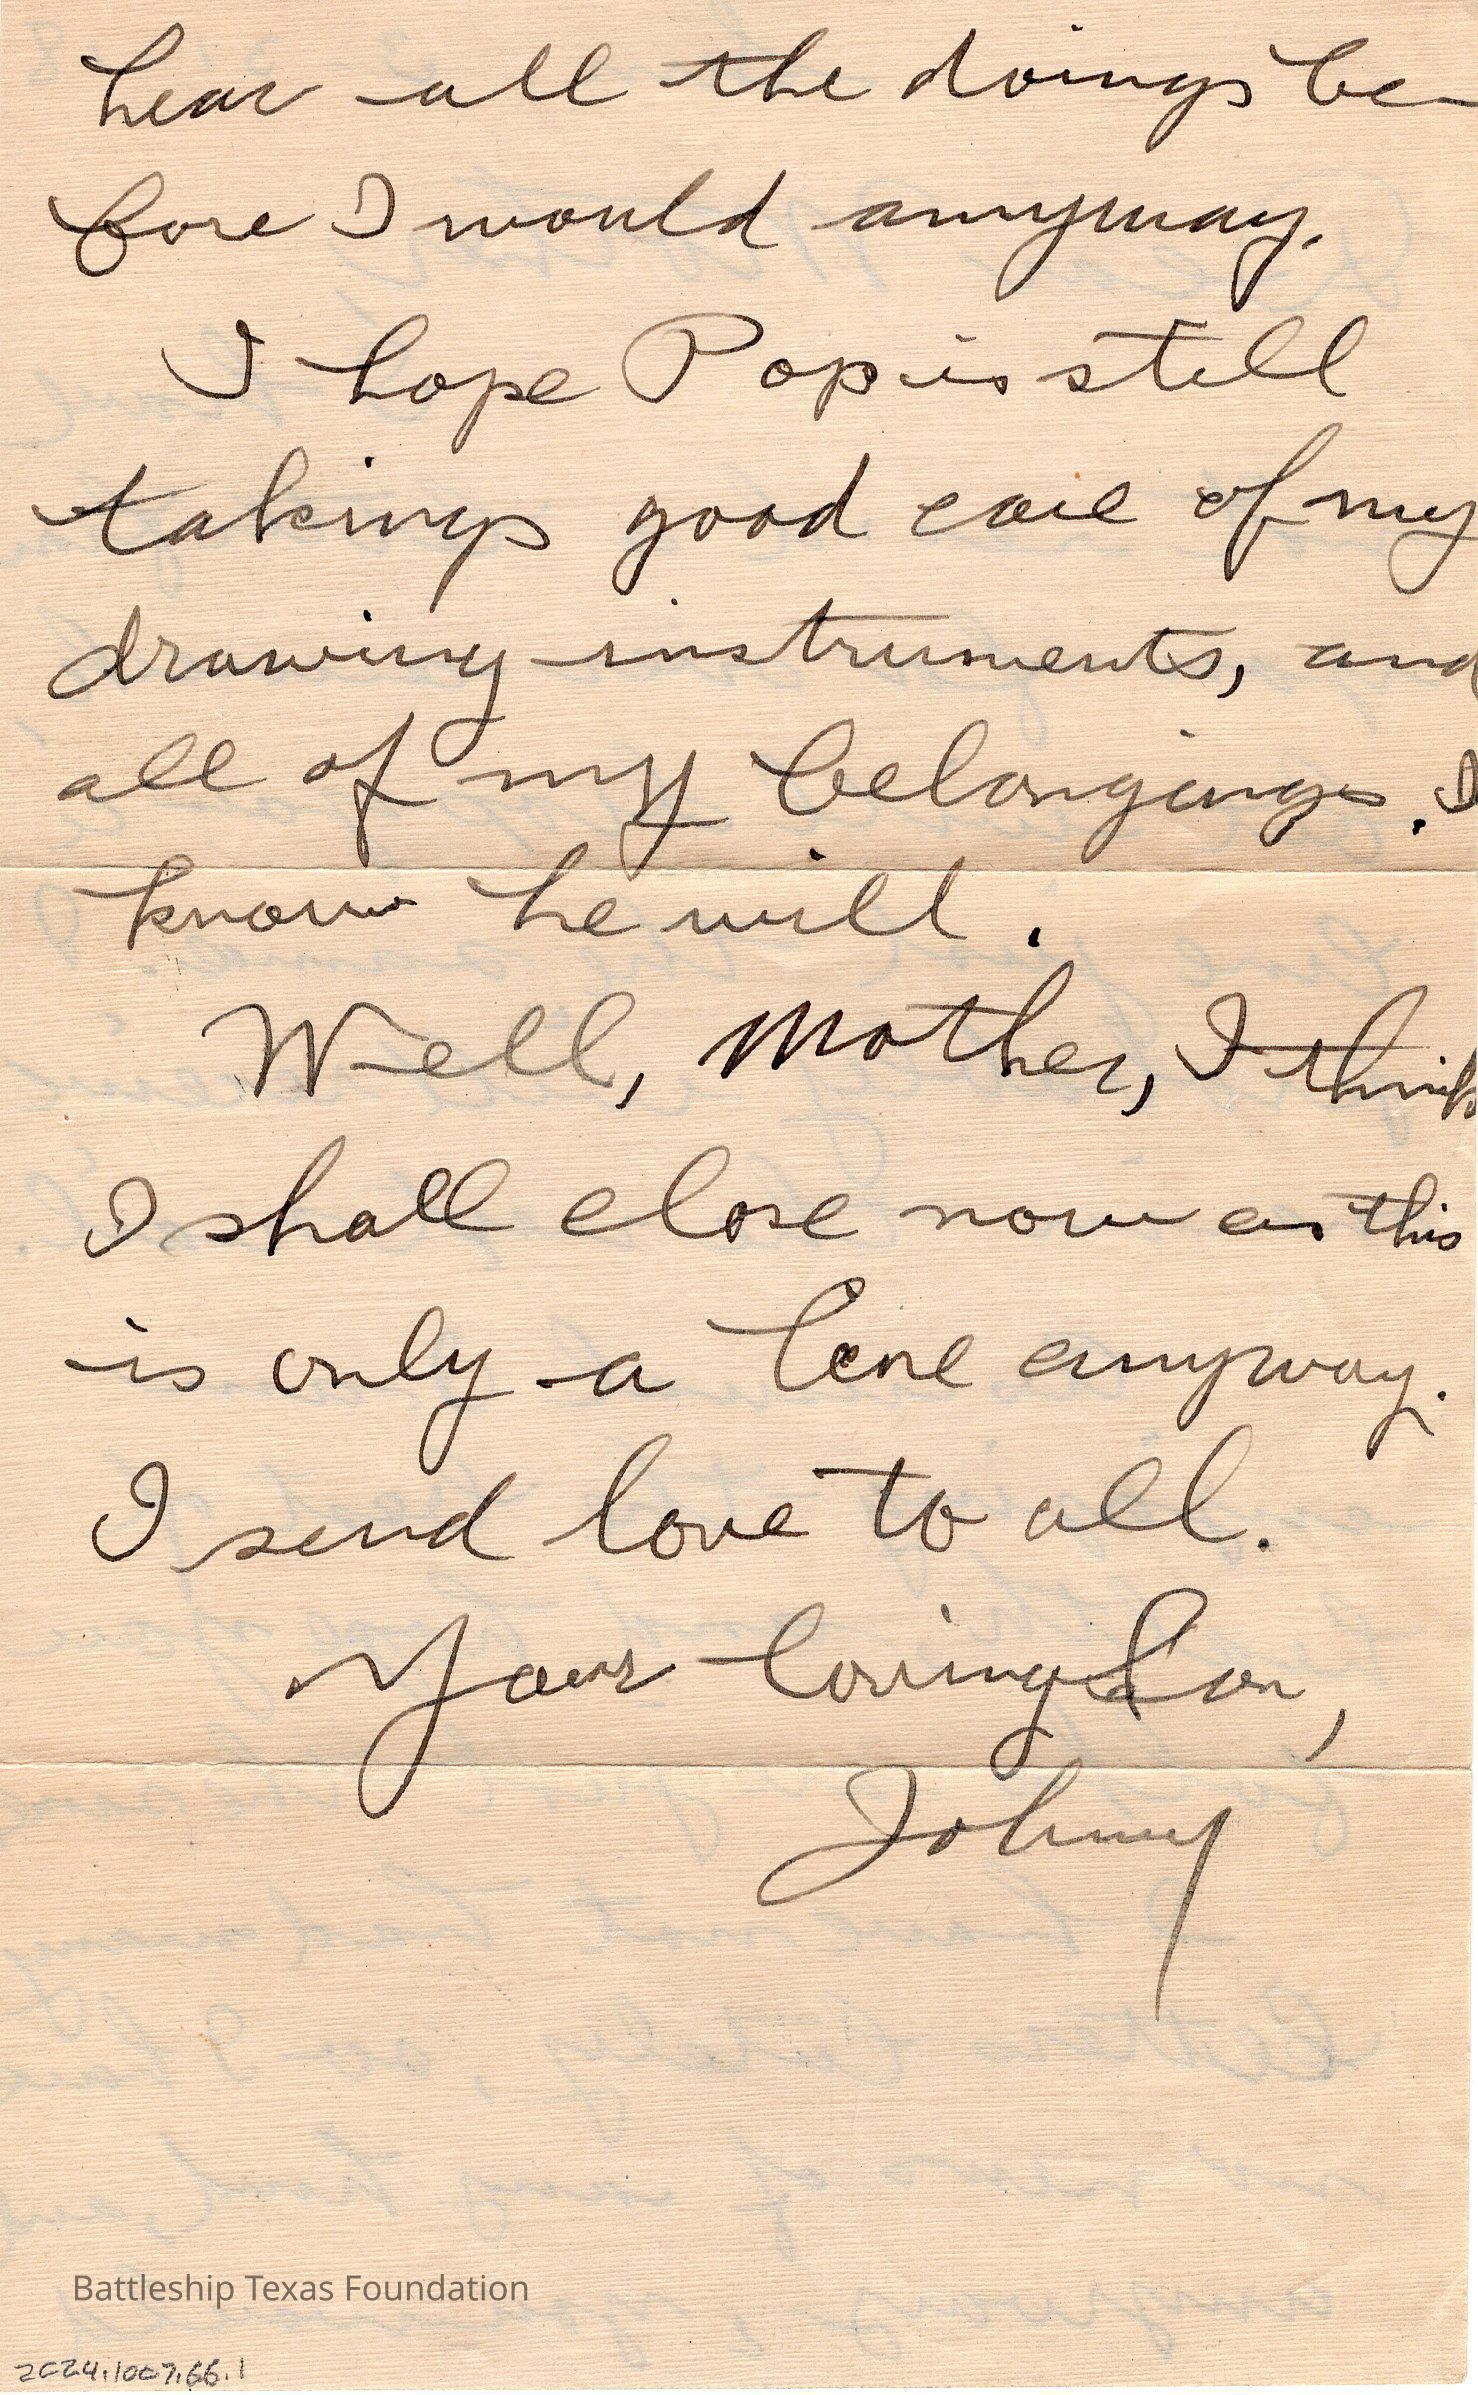 hear all the doings be-
fore I would anyway.
I hope Pop is still
taking good care of my
drawing instruments, and
all of my belongings. I
know he will.
Well, Mother, I think
I shall close now as this
is only a line anyway.
I send love to all.
Your loving Son,
Johny
Battleship Texas Foundation
2024.1007.66.1